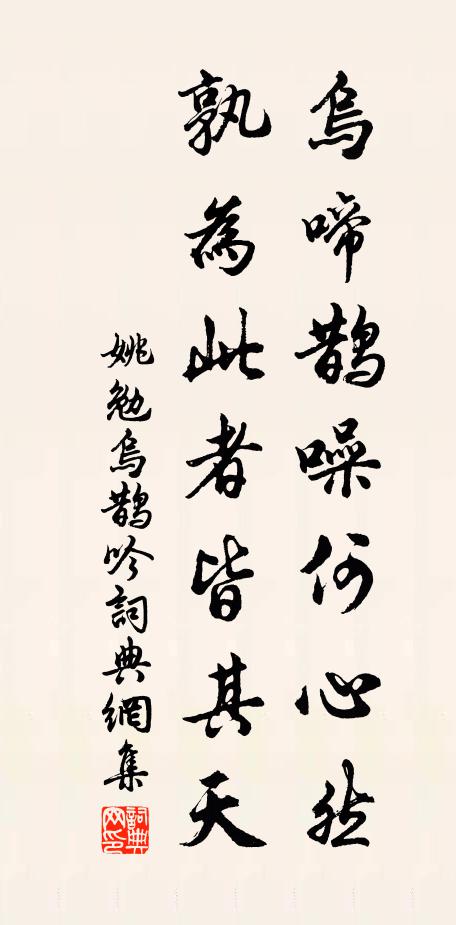 烏啼鵲噪何心然
孰為此者皆其天
姚勉烏鵲吟詞典網集
詞典網印